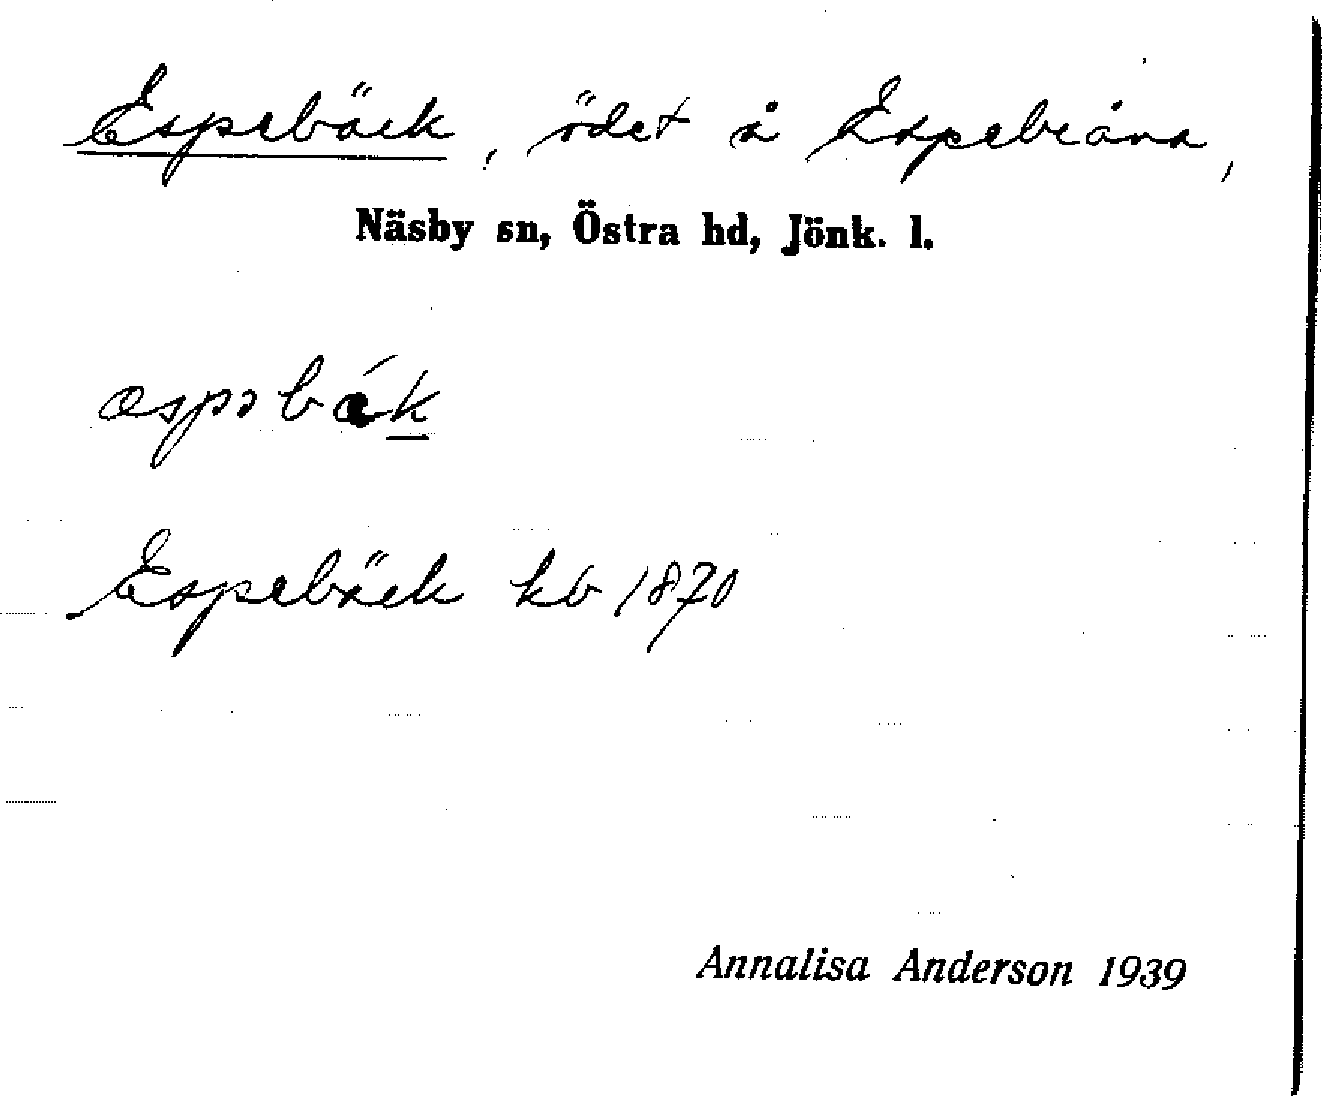 Espebäck, ödet å Espebråna,
Näsby sn, Östra hd, Jönk. l.
Espebäck kb 1870
Annalisa Anderson 1939